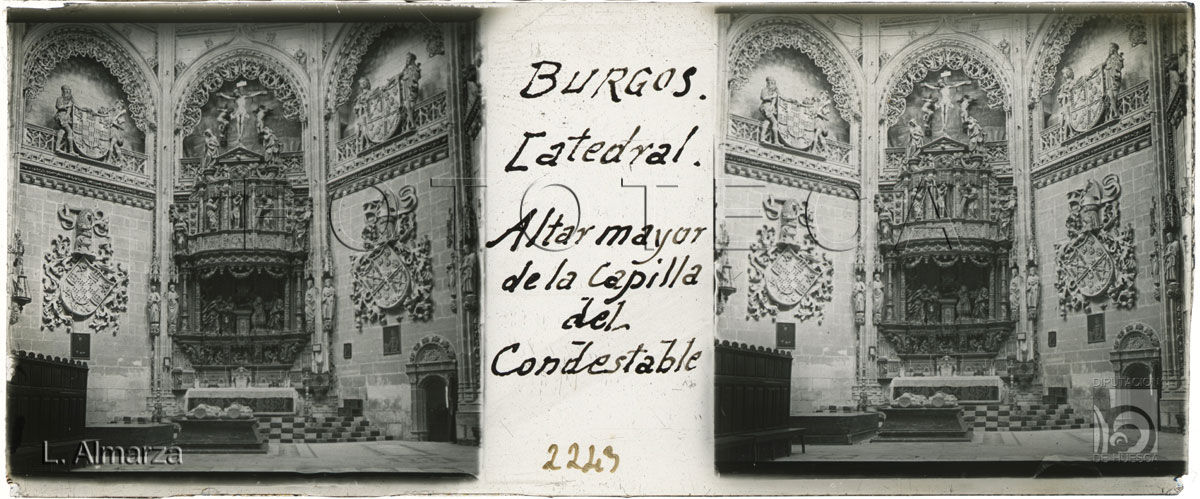 BURGOS.
Catedral.
Altar mayor
de la Capilla
del
Condestable
2243
FOTOTECA
L. Almarza
DIPUTACIÓN
DE HUESCA